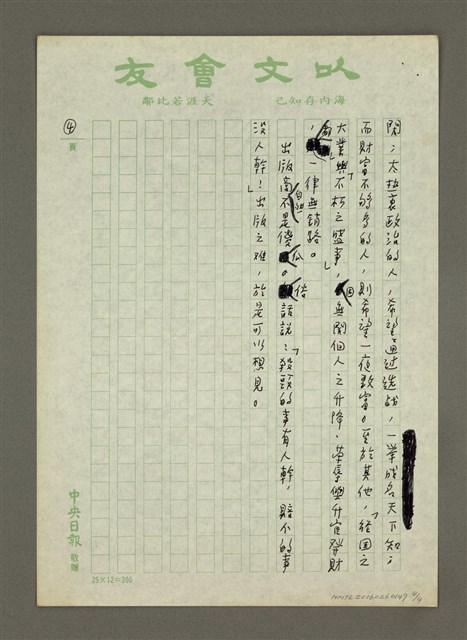 以文會友
海內存知己
天涯若比鄰
④
頁
閱；太熱衷政治的人，希望通過選战，一舉成名天下知；
而財富不够多的人，則希望一夜致富。至於其他，「經国之
大業與「不朽之盛事」，因無關個人之升降、榮辱與升官發財
，一律無銷路。
出版商自然不是傻瓜。俗話説：「殺頭的事有人幹，賠本的事
沒人幹！」出版之难，於是可以想見。
中央日報 敬贈
25×12=300
NMTL20160260147 4/4